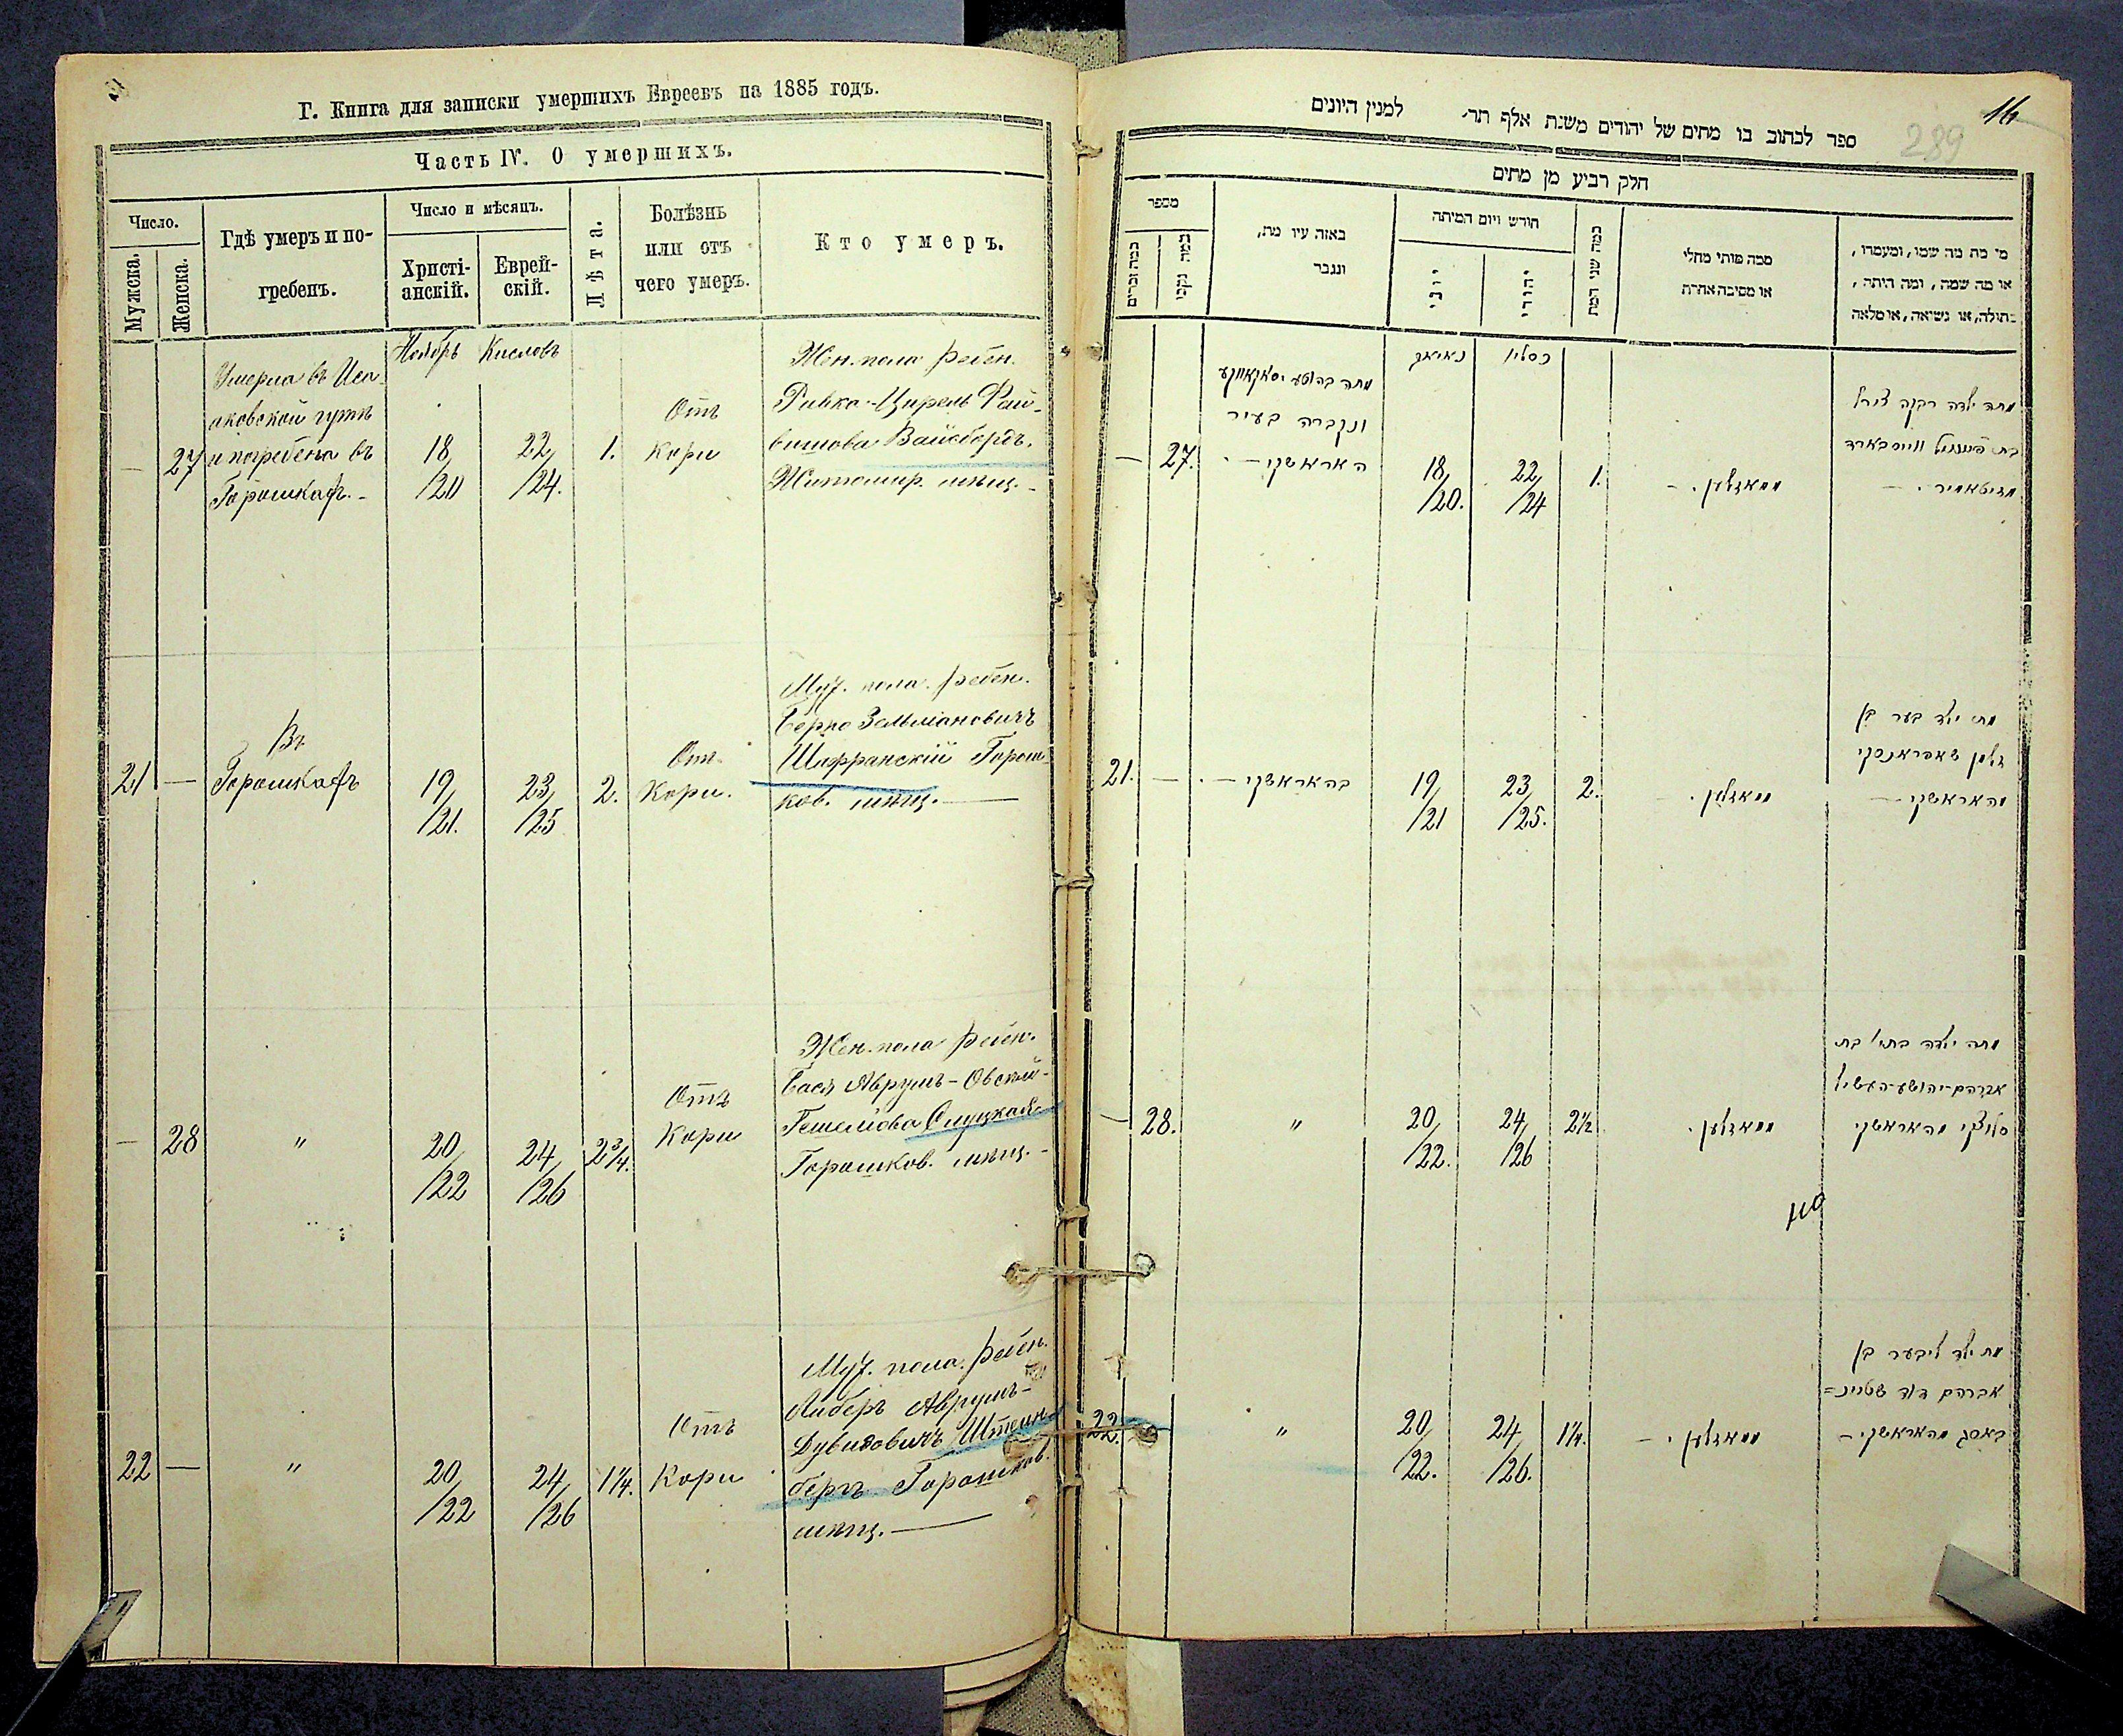 Г. Книга для записки умершихъ Евреевъ на 1885 годъ.
Часть IV. О умершихъ.
Число.
Мужска.
Женска.
Гдѣ умеръ и по-
гребенъ.
Число и мѣсяцъ.
Христі-
анскій.
Еврей-
скій.
Лѣта.
Болѣзнь
или отъ
чего умеръ.
Кто умеръ.
Ноябрь Кислевъ
—
27
Умерла въ Иса-
аковской гутѣ
и погребена въ
Горошкахъ. -
18
/20
22
/24.
1.
Отъ
Кори
Жен. пола ребен.
Ривка-Цирель Фай-
вишова Вайсбордъ.
Житомир. мѣщ. -
21
—
Въ
Горошкахъ
19
/21.
23
/25
2.
Отъ
Кори.
Муж. пола. ребен.
Берко Зельмановичъ
Шафранскій Горош-
ков. мѣщ. —
—
28
"
20
/22
24
/26
2 3/4.
Отъ
Кори
Жен. пола ребен.
Бася Аврумъ-Овсей-
Гешелова Слуцкая
Горошков. мѣщ. -
22
—
"
20
/22
24
/26
1 1/4.
Отъ
Кори
Муж. пола. ребен.
Либеръ Аврумъ-
Дувидовичъ Штейн-
бергъ Горошков.
мѣщ. —
16
289
ספר לכתוב בו מתים של יהודים משנת אלף תר׳ למנין היונים
חלק רביע מן מתים
מספר
כמה זכרים
כמה נקבו
באזה עיו מת,
ונגבר
חודש ויום המיתה
יוני
יהודי
כמה שני המת
ממה מותי מחלי
או מסיבה אחרת
מי מת מה שמו, ומעמדו,
או מה שמה, ומה היתה,
בתולה, או נשיאה, או מלאה
כסליו
—
27.
ונקברה בעיר
האראשקי -
18
/20.
22
/24
1.
מאזלען. -
מתה ילדה רבקה צירל
בת פייוויש ווייסבארד
מזיטאמיר. -
21.
—
בהאראשקי -
19
/21
23
/25.
2.
מאזלען. -
מת ילד בער בן
זלמן שאפראנסקי
מהאראשקי -
—
28.
"
20
/22.
24
/26
2 1/2
מאזלען.
מתה ילדה בתי׳ בת
אברהם-יהושע-העשיל
סלוצקי מהאראשקי
22.
"
20
/22.
24
/26.
1 1/4.
מאזלען. -
מת ילד ליבער בן
אברהם דוד שטיינ=
בארג מהאראשקי -